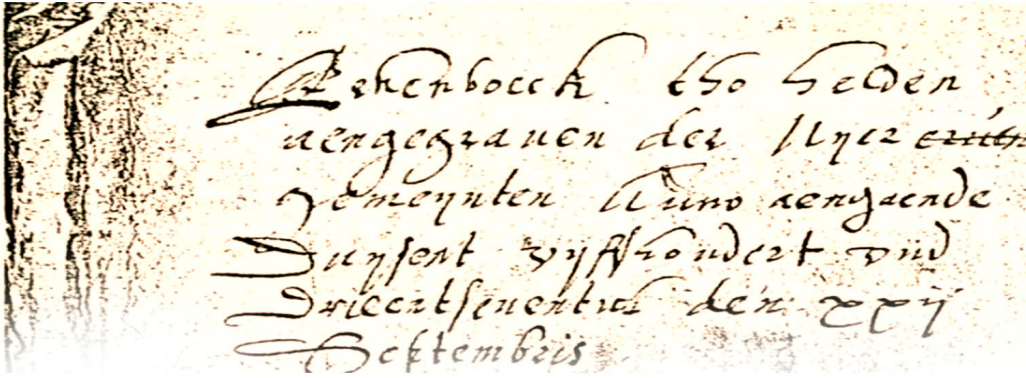 Rekenboeck tho helden
aengegraven der Nyer
gemeynten Anno aengaende
Duysent vyffhondert und
drieentseventich den xxij
Septembris